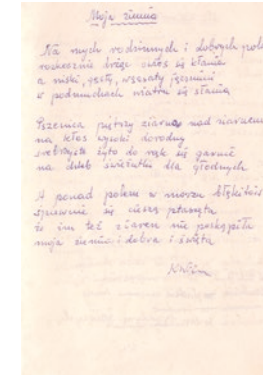 Moja ziemia
Na mych rodzinnych i dobrych pol
rozkosznie brzęc kłos się kłania
a niski, gęsty, wąsaty jęczmień
w podmuchach wiatru się słania
Pszenica piętrzy ziarna nad ziarnem
na kłos wysoki dorodny
srebrzyste żyto do ręk się garnie
na chleb świeżutki dla głodnych
A ponad polem w morzu błękitów
śpiewnie się cieszą ptaszęta
że im też ziaren nie poskąpiła
moja ziemia i dobra i święta